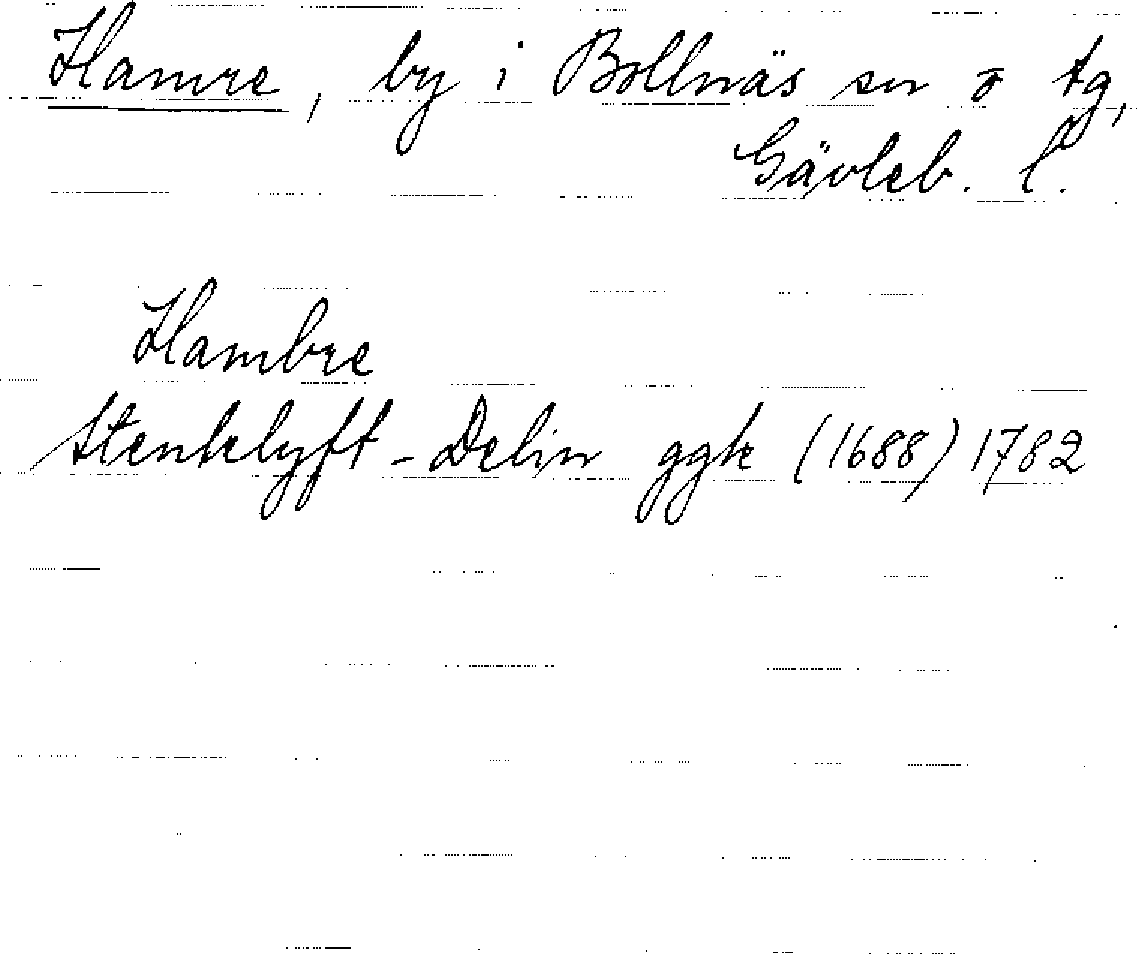 Hamre, by i Bollnäs sn o tg,
Gävleb. l.
Hambre
Stenklyft - Delin ggk (1688) 1782